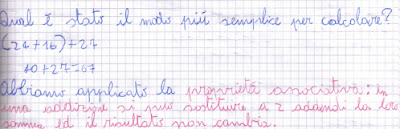 Qual è stato il modo più semplice per calcolare?
(24+16)+27
40+27=67
Abbiamo applicato la proprietà associativa: in
una addizione si può sostituire a 2 addendi la loro
somma ed il risultato non cambia.